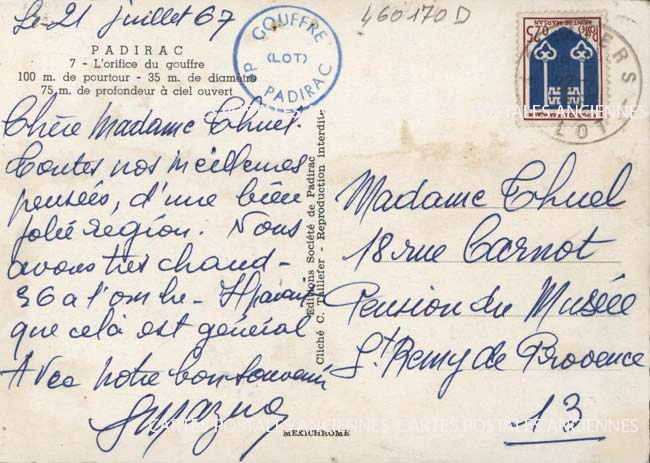 Le 21 juillet 67
460170D
PADIRAC
7 - L'orifice du gouffre
100 m. de pourtour - 35 m. de diamètre
75 m. de profondeur à ciel ouvert
GOUFFRE
(LOT)
P PADIRAC
0,25
MONT-DE-MARSAN
LOT
Chère Madame Thuel.
Toutes nos meilleures
pensées, d'une bien
jolie région. Nous
avons très chaud -
36 a l'ombre - Il parait
que celà est général
Avec notre bon souvenir
Editions Société de Padirac
Cliché C. Taillefer - Reproduction interdite
MEXICHROME
Madame Thuel
18 rue Carnot
Pension du Musée
St Remy de Provence
13
CARTES POSTALES ANCIENNES CARTES POSTALES ANCIENNES